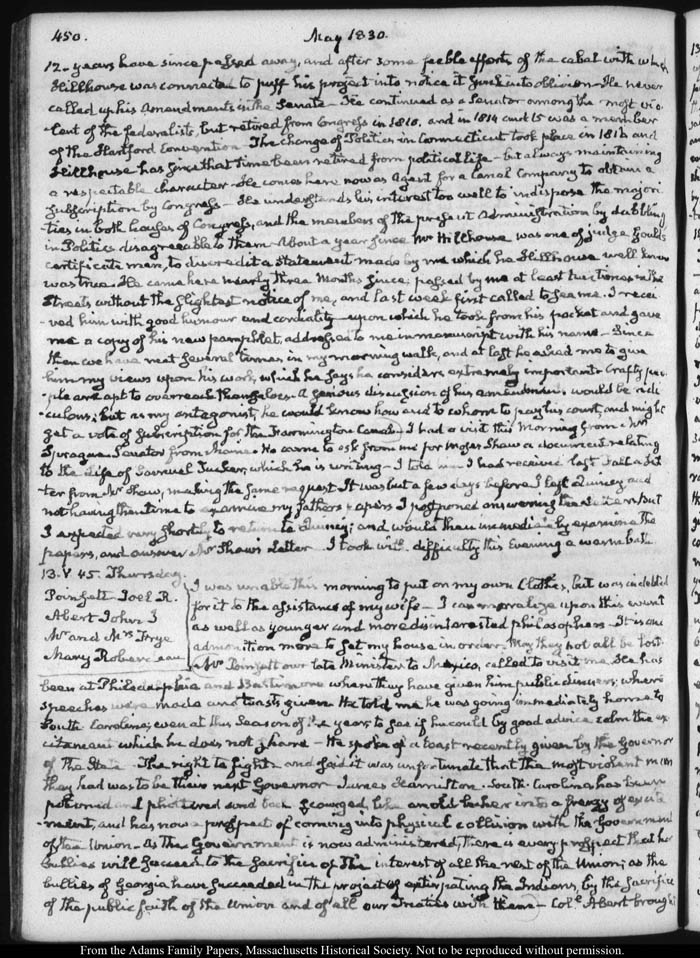 450. May 1830.
12. years have since passed away, and after some feeble efforts of the cabal with which
Hillhouse was connected to puff his project into notice it sunk into oblivion. He never
called up his Amendments in the Senate. He continued as a Senator among the most vio-
-lent of the federalists, but retired from Congress in 1810, and in 1814 and 15 was a member
of the Hartford Convention. The change of Politics in Connecticut took place in 1816 and
Hillhouse has since that time been retired from political life - but always maintaining
a respectable character. He comes here now as Agent for a Canal Company to obtain a
subscription by Congress - He understands his interest too well to indispose the majori
ties in both houses of Congress, and the members of the present Administration by dabbling
in Politics disagreeable to them. About a year since Mr Hillhouse was one of judge Gould's
certificate men, to discredit a statement made by me which he Hillhouse well knew
was true. He came here nearly three Months since; passed by me at least two times in the
streets without the slightest notice of me, and last week first called to see me. I recei
ved him with good humour and cordiality - upon which he took from his pocket and gave
me a copy of his new pamphlet, addressed to me in manuscript with his name - Since
then we have met several times in my morning walk, and at last he asked me to give
him my views upon his work, which he says he considers extremely important. Crafty peo-
-ple are apt to overreach themselves. A serious discussion of his amendments would be ridi
-culous; but as my antagonist, he would know how and to whom to pay his court, and might
get a vote of subscription for the Farmington Canal. I had a visit this Morning from Mr
Sprague Senator from Maine. He came to ask from me for Moses Shaw a document relating
to the Life of Samuel Tucker, which he is writing - I told him I had received last Fall a Let
-ter from Mr Shaw, making the same request. It was but a few days before I left Quincy, and
not having then time to examine my father's papers I postponed answering the Letter. But
I expected very shortly to return to Quincy; and would then immediately examine the
papers, and answer Mr Shaw's Letter. I took with difficulty this Evening a warm bath.
13. V. 45. Thursday.
Poinsett Joel R.
Abert John J
Mr and Mrs Frye
Mary Roberdeau
I was unable this morning to put on my own Clothes, but was indebted
for it to the assistance of my wife - I can moralize upon this event
as well as younger and more disinterested philosophers. It is one
admonition more to set my house in order. May they not all be lost.
Mr Poinsett our late Minister to Mexico, called to visit me. He has
been at Philadelphia and Baltimore where they have given him public dinners; where
speeches were made and toasts given. He told me he was going immediately home to
South Carolina; even at this season of the year, to see if he could by good advice calm the ex
citement which he does not share - He spoke of a toast recently given by the Governor
of the State - The right to fight - and said it was unfortunate that the most violent man
they had was to be their next Governor James Hamilton. South Carolina has been
potioned and and been scourged, like an old into a frenzy of excite
-ment, and has now a prospect of coming into physical collision with the Government
of the Union. As the Government is now administered, there is every prospect that her
bullies will succeed to the sacrifice of the interest of all the rest of the Union; as the
bullies of Georgia have succeeded in the project of extirpating the Indians, by the sacrifice
of the public faith of the Union and of all our Treaties with them - Coll Abert brought
From the Adams Family Papers, Massachusetts Historical Society. Not to be reproduced without permission.